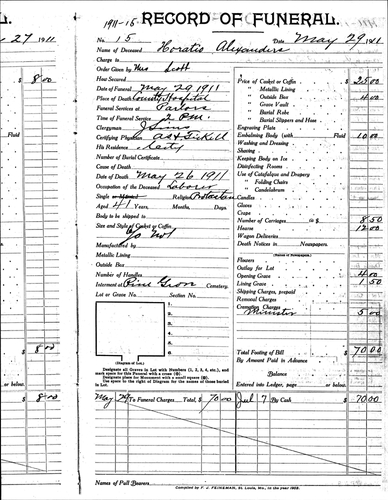 27 1911
1911-15 RECORD OF FUNERAL.
No. 15 Date May 29 1911
Name of Deceased Horatio Alexanders
Charge to
Order Given by Mrs Scott
How Secured
Date of Funeral May 29 1911
Place of Death County Hospital
Funeral Services at Parlors
Time of Funeral Service 2 P.M.
Clergyman J Sims
Certifying Physician
His Residence City
Number of Burial Certificate
Cause of Death
Date of Death May 26 1911
Occupation of the Deceased Laborer
Single or Married Religion Protestan
Aged 41 Years, Months, Days
Body to be shipped to
Size and Style of Casket or Coffin
Manufactured by
Metallic Lining
Outside Box
Number of Handles
Interment at Pine Grove Cemetery.
Lot or Grave No. Section No.
1.
2.
3.
4.
5.
6.
(Diagram of Lot.)
Designate all Graves in Lot with Numbers (1, 2, 3, 4, etc.), and mark space for this Funeral with a cross
Designate place for Monument with a small square
Use space to the right of Diagram for the names of those buried in Lot.
Price of Casket or Coffin 25 00
" Metallic Lining
" Outside Box 4 00
" Grave Vault
" Burial Robe
" Burial Slippers and Hose
Engraving Plate
Embalming Body (with Fluid) 10 00
Washing and Dressing
Shaving
Keeping Body on Ice
Disinfecting Rooms
Use of Catafalque and Drapery
" Folding Chairs
" Candelabrum
Candles
Gloves
Crape
Number of Carriages @ $ 8 50
Hearse 12 00
Wagon Deliveries
Death Notices in Newspapers.
(Names of Newspapers)
Flowers
Outlay for Lot
Opening Grave 4 00
Lining Grave 1 50
Shipping Charges, prepaid
Removal Charges
Cremation Charges
Minister 5 00
Total Footing of Bill $70 00
By Amount Paid in Advance
Balance
Entered into Ledger, page or below.
May 29 To Funeral Charges Total, $ 70 00 Jul 7 By Cash $ 70 00
Names of Pall Bearers
Compiled by F. J. FEINEMAN, St. Louis, Mo., in the year 1903.
$ 8 00
Fluid
$ 8 00
or below.
$ 8 00